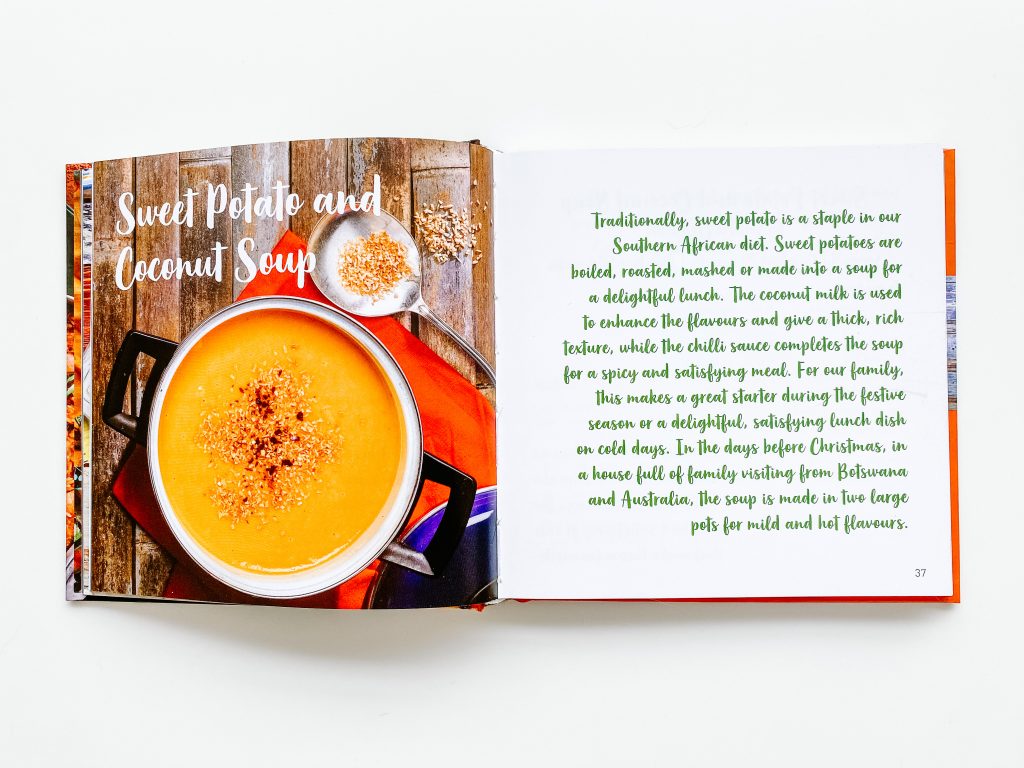 Sweet Potato and
Coconut Soup
Traditionally, sweet potato is a staple in our
Southern African diet. Sweet potatoes are
boiled, roasted, mashed or made into a soup for
a delightful lunch. The coconut milk is used
to enhance the flavours and give a thick, rich
texture, while the chilli sauce completes the soup
for a spicy and satisfying meal. For our family,
this makes a great starter during the festive
season or a delightful, satisfying lunch dish
on cold days. In the days before Christmas, in
a house full of family visiting from Botswana
and Australia, the soup is made in two large
pots for mild and hot flavours.
37